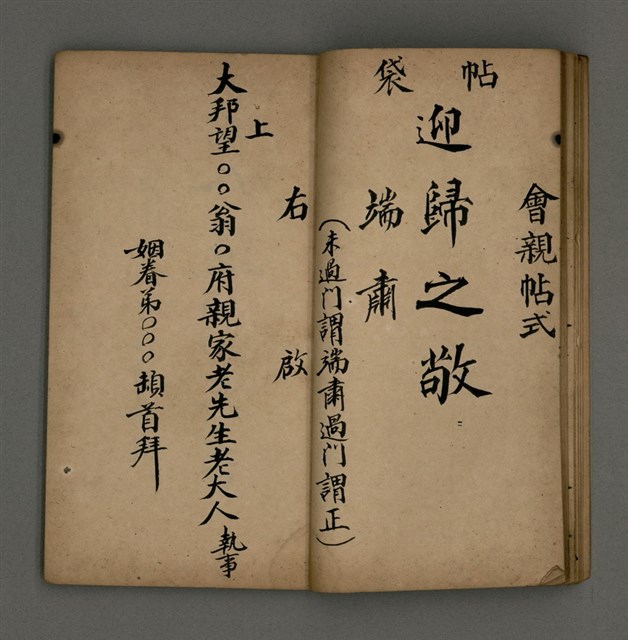 會親帖式
帖袋
迎歸之敬
端肅
(未過门謂端肅過门謂正)
右啟
上
大邦望〇〇翁〇府親家老先生老大人執事
姻眷弟〇〇〇頓首拜